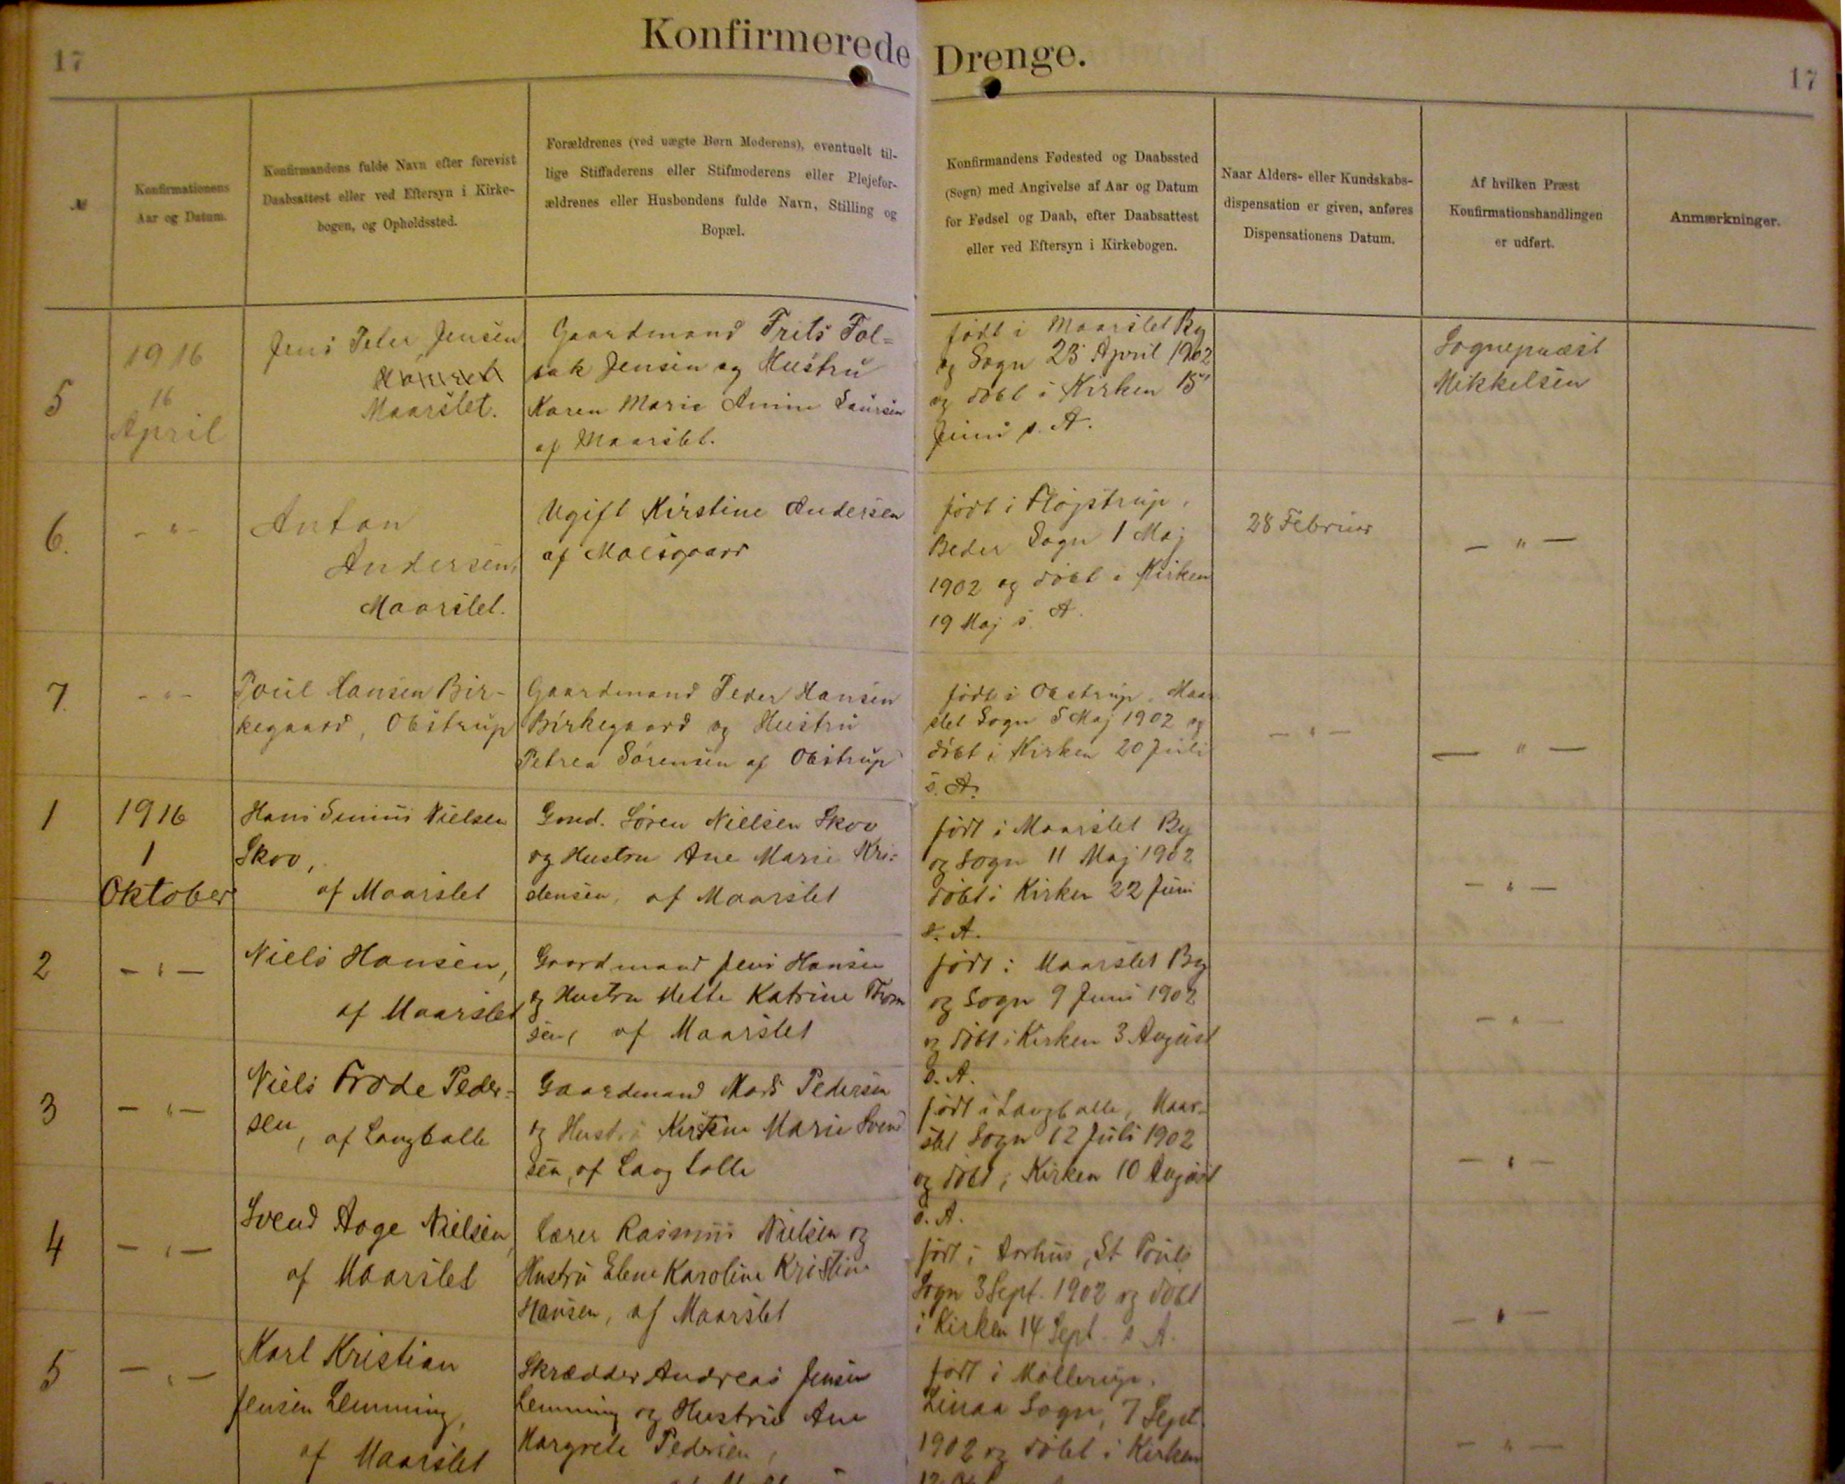 17
Konfirmerede Drenge.
17
№
Konfirmationens
Aar og Datum.
Konfirmandens fulde Navn efter forevist
Daabsattest eller ved Eftersyn i Kirke-
bogen, og Opholdssted.
Forældrenes (ved uægte Børn Moderens), eventuelt til-
lige Stiffaderens eller Stifmoderens eller Plejefor-
ældrenes eller Husbondens fulde Navn, Stilling og
Bopæl.
Konfirmandens Fødested og Daabssted
(Sogn) med Angivelse af Aar og Datum
for Fødsel og Daab, efter Daabsattest
eller ved Eftersyn i Kirkebogen.
Naar Alders- eller Kundskabs-
dispensation er given, anføres
Dispensationens Datum.
Af hvilken Præst
Konfirmationshandlingen
er udført.
Anmærkninger.
5
1916
16
April
Jens Peter Jensen
Maarslet.
Gaardmand Frits Fol=
sak Jensen og Hustru
Karen Marie Laursen
af Maarslet.
født i Maarslet By
og Sogn 23 April 1902
og døbt i Kirken 15
Juni s. A.
Sognepræst
Mikkelsen
6.
- " -
Anton
Andersen,
Maarslet.
Ugift Kirstine Andersen
af Moesgaard
født i Fløjstrup,
Beder Sogn 1 Maj
1902 og døbt i Kirken
19 Maj s. A.
28 Februar
- " -
7.
- " -
Poul Hansen Bir-
kegaard, Obstrup
Gaardmand Peder Hansen
Birkegaard og Hustru
Petrea Sørensen af Obstrup
født i Obstrup, Maar
slet Sogn 5 Maj 1902 og
døbt i Kirken 20 Juli
s. A.
- " -
- " -
1
1916
1
Oktober
Hans Nielsen
Skov,
af Maarslet
Gmd. Søren Nielsen Skov
og Hustru Ane Marie Kri=
stensen, af Maarslet
født i Maarslet By
og Sogn 11 Maj 1902
døbt i Kirken 22 Juni
s. A.
- " -
2
- " -
Niels Hansen,
af Maarslet
Gaardmand Jens Hansen
og Hustru Mette Katrine Thom
sen, af Maarslet
født i Maarslet By
og Sogn 9 Juni 1902
og døbt i Kirken 3 August
s. A.
- " -
3
- " -
Niels Frode Peder=
sen, af Langballe
Gaardmand Mads Pedersen
og Hustru Kirstine Marie Svend
sen, af Langballe
født i Langballe, Maar-
slet Sogn 12 Juli 1902
og døbt i Kirken 10 August
s. A.
- " -
4
- " -
Svend Aage Nielsen,
af Maarslet
Lærer Rasmus Nielsen og
Hustru Elene Karoline Kristine
Hansen, af Maarslet
født i Aarhus, St Pouls
Sogn 3 Sept. 1902 og døbt
i Kirken 14 Sept. s. A.
- " -
5
- " -
Karl Kristian
Jensen Lemming,
af Maarslet
Skrædder Andreas Jensen
Lemming og Hustru Ane
Margrete Pedersen,
født i Møllerup,
Linaa Sogn, 7 Sept.
1902 og døbt i Kirken
- " -